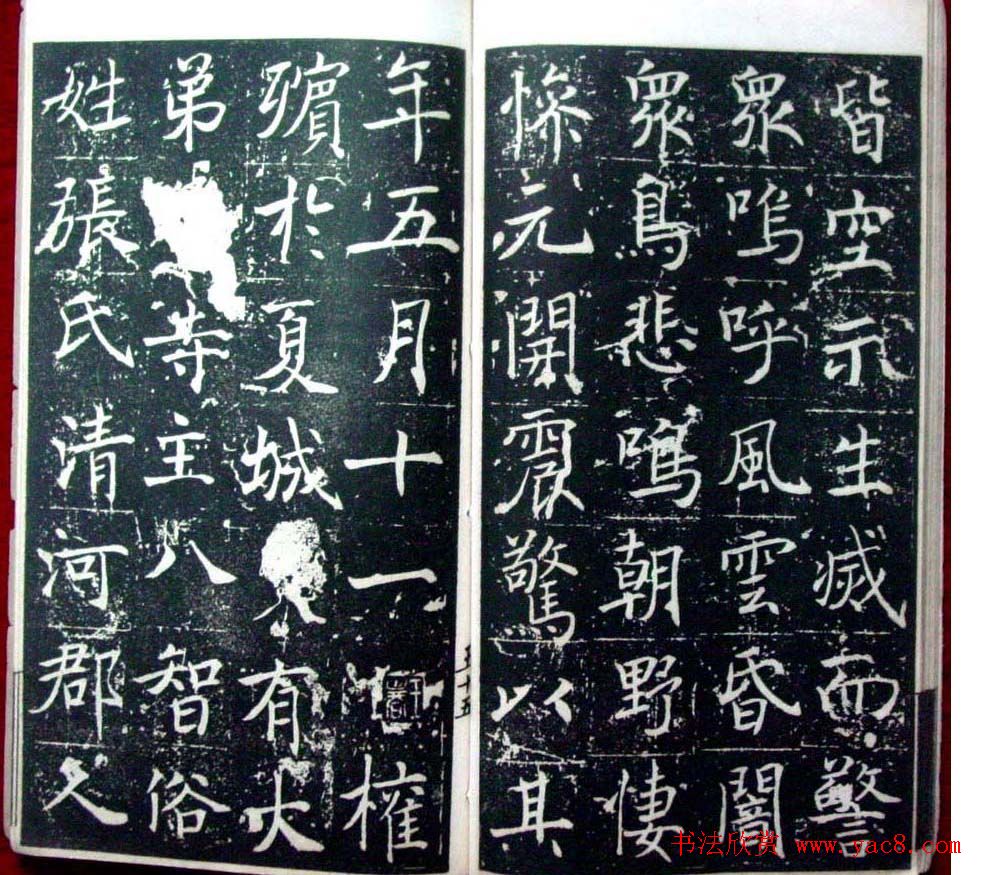 皆空示生滅而警
眾嗚呼風雲昏闇
眾鳥悲鳴朝野悽
慘元開震驚以其
年五月十一 權
殯於夏城 有大
弟 寺主八智俗
姓張氏清河郡久
五十五
书法欣赏 www.yac8.com